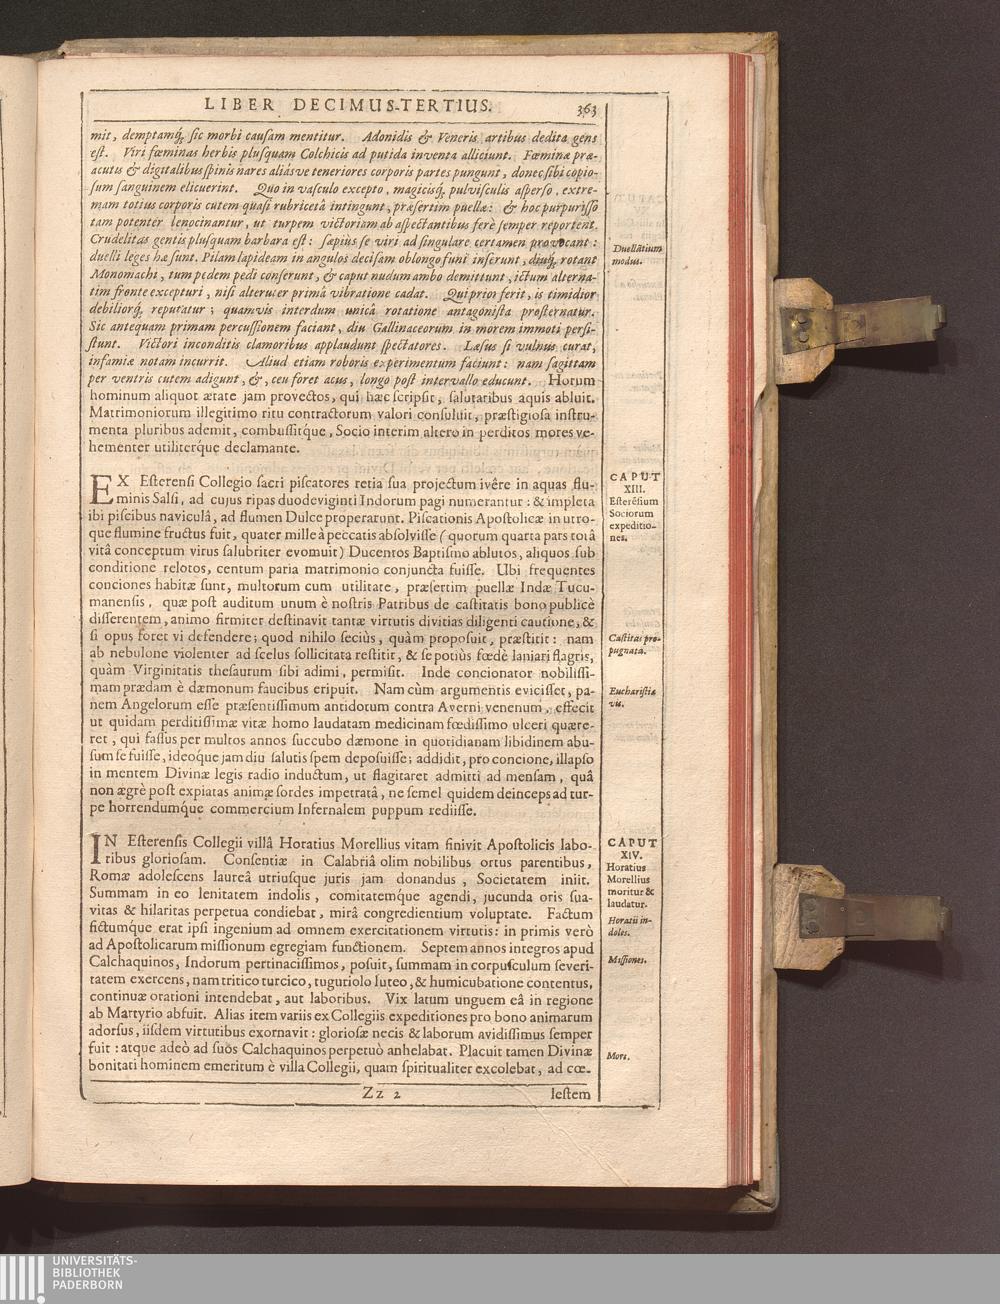 LIBER DECIMUS-TERTIUS. 363
mit, demptamq́; sic morbi causam mentitur. Adonidis & Veneris artibus dedita gens
est. Viri fœminas herbis plusquam Colchicis ad putida inventa alliciunt. Fœminæ præ-
acutis & digitalibus spinis nares aliásve teneriores corporis partes pungunt, donec sibi copio-
sum sanguinem elicuerint. Quo in vasculo excepto, magicisq́; pulvisculis asperso, extre-
mam totius corporis cutem quasi rubricetâ intingunt, præsertim puellæ: & hoc purpurisso
tam potenter lenocinantur, ut turpem victoriam ab aspectantibus ferè semper reportent.
Crudelitas gentis plusquam barbara est: sæpius se viri ad singulare certamen provocant:
duelli leges hæ sunt. Pilam lapideam in angulos decisam oblongo funi inserunt, diuq́; rotant
Monomachi, tum pedem pedi conserunt, & caput nudum ambo demittunt, ictum alterna-
tim fronte excepturi, nisi alteruter primâ vibratione cadat. Qui prior ferit, is timidior
debiliorq́; reputatur; quamvis interdum unicâ rotatione antagonista prosternatur.
Sic antequam primam percussionem faciant, diu Gallinaceorum in morem immoti persi-
stunt. Victori inconditis clamoribus applaudunt spectatores. Læsus si vulnus curat,
infamiæ notam incurrit. Aliud etiam roboris experimentum faciunt: nam sagittam
per ventris cutem adigunt, &, ceu foret acus, longo post intervallo educunt. Horum
hominum aliquot ætate jam provectos, qui hæc scripsit, salutaribus aquis abluit.
Matrimoniorum illegitimo ritu contractorum valori consuluit, præstigiosa instru-
menta pluribus ademit, combussitque, Socio interim altero in perditos mores ve-
hementer utiliterq́ue declamante.
Duellãtium
modus.
EX Esterensi Collegio sacri piscatores retia sua projectum ivêre in aquas flu-
minis Salsi, ad cujus ripas duodeviginti Indorum pagi numerantur: & impleta
ibi piscibus naviculâ, ad flumen Dulce properarunt. Piscationis Apostolicæ in utro-
que flumine fructus fuit, quater mille à peccatis absolvisse (quorum quarta pars totâ
vitâ conceptum virus salubriter evomuit) Ducentos Baptismo ablutos, aliquos sub
conditione relotos, centum paria matrimonio conjuncta fuisse. Ubi frequentes
conciones habitæ sunt, multorum cum utilitate, præsertim puellæ Indæ Tucu-
manensis, quæ post auditum unum è nostris Patribus de castitatis bono publicè
disserentem, animo firmiter destinavit tantæ virtutis divitias diligenti cautione, &
si opus foret vi defendere; quod nihilo seciùs, quàm proposuit, præstitit: nam
ab nebulone violenter ad scelus sollicitata restitit, & se potiùs fœdè laniari flagris,
quàm Virginitatis thesaurum sibi adimi, permisit. Inde concionator nobilissi-
mam prædam è dæmonum faucibus eripuit. Nam cùm argumentis evicisset, pa-
nem Angelorum esse præsentissimum antidotum contra Averni venenum, effecit
ut quidam perditissimæ vitæ homo laudatam medicinam fœdissimo ulceri quære-
ret, qui fassus per multos annos succubo dæmone in quotidianam libidinem abu-
sum se fuisse, ideoq́ue jam diu salutis spem deposuisse; addidit, pro concione, illapso
in mentem Divinæ legis radio inductum, ut flagitaret admitti ad mensam, quâ
non ægrè post expiatas animæ sordes impetratâ, ne semel quidem deinceps ad tur-
pe horrendumq́ue commercium Infernalem puppum rediisse.
CAPUT
XIII.
Esterẽsium
Sociorum
expeditio-
nes.
Castitas pro-
pugnata.
Eucharistiæ
vis.
IN Esterensis Collegii villâ Horatius Morellius vitam finivit Apostolicis labo-
ribus gloriosam. Consentiæ in Calabriâ olim nobilibus ortus parentibus,
Romæ adolescens laureâ utriusque juris jam donandus, Societatem iniit.
Summam in eo lenitatem indolis, comitatemq́ue agendi, jucunda oris sua-
vitas & hilaritas perpetua condiebat, mirâ congredientium voluptate. Factum
fictumq́ue erat ipsi ingenium ad omnem exercitationem virtutis: in primis verò
ad Apostolicarum missionum egregiam functionem. Septem annos integros apud
Calchaquinos, Indorum pertinacissimos, posuit, summam in corpusculum severi-
tatem exercens, nam tritico turcico, tuguriolo luteo, & humicubatione contentus,
continuæ orationi intendebat, aut laboribus. Vix latum unguem eâ in regione
ab Martyrio abfuit. Alias item variis ex Collegiis expeditiones pro bono animarum
adorsus, iisdem virtutibus exornavit: gloriosæ necis & laborum avidissimus semper
fuit: atque adeò ad suos Calchaquinos perpetuò anhelabat. Placuit tamen Divinæ
bonitati hominem emeritum è villa Collegii, quam spiritualiter excolebat, ad cœ-
CAPUT
XIV.
Horatius
Morellius
moritur &
laudatur.
Horatii in-
doles.
Missiones.
Mors.
Zz 2 lestem
UNIVERSITÄTS-
BIBLIOTHEK
PADERBORN